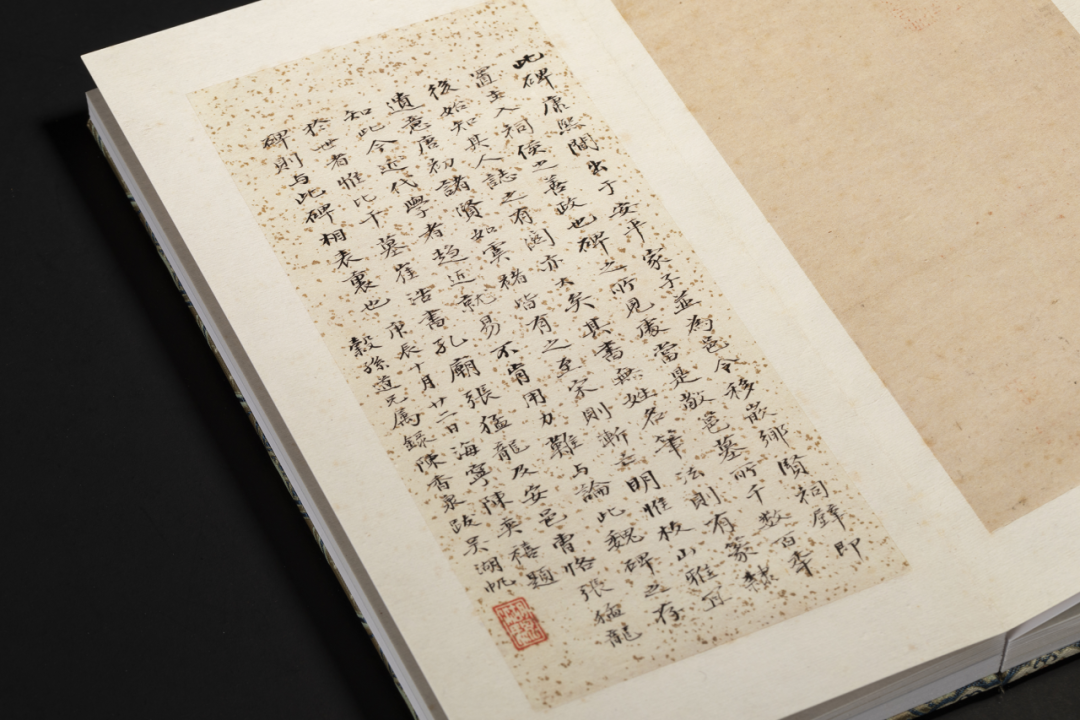 此碑康熙間出于安平家子並為邑令移嵌鄉賢祠壁即
置主入祠侯之善政也碑之所見處當是敬邕墓所千數百年
後始知其人誌之有關亦大矣其書無姓名筆法則有篆隸
遺意唐初諸賢如虞褚皆有之至宋則漸亡明惟枝山雅宜
知此今近代學者趨近就易不肯用力難与論此魏碑之存
於世者惟比干墓崔浩書孔廟張猛龍及安邑曹恪張猛龍
碑則与此碑相表裏也 庚辰十月廿二日海寧陳奕禧題
穀孫道兄属録陳香泉跋吴湖帆